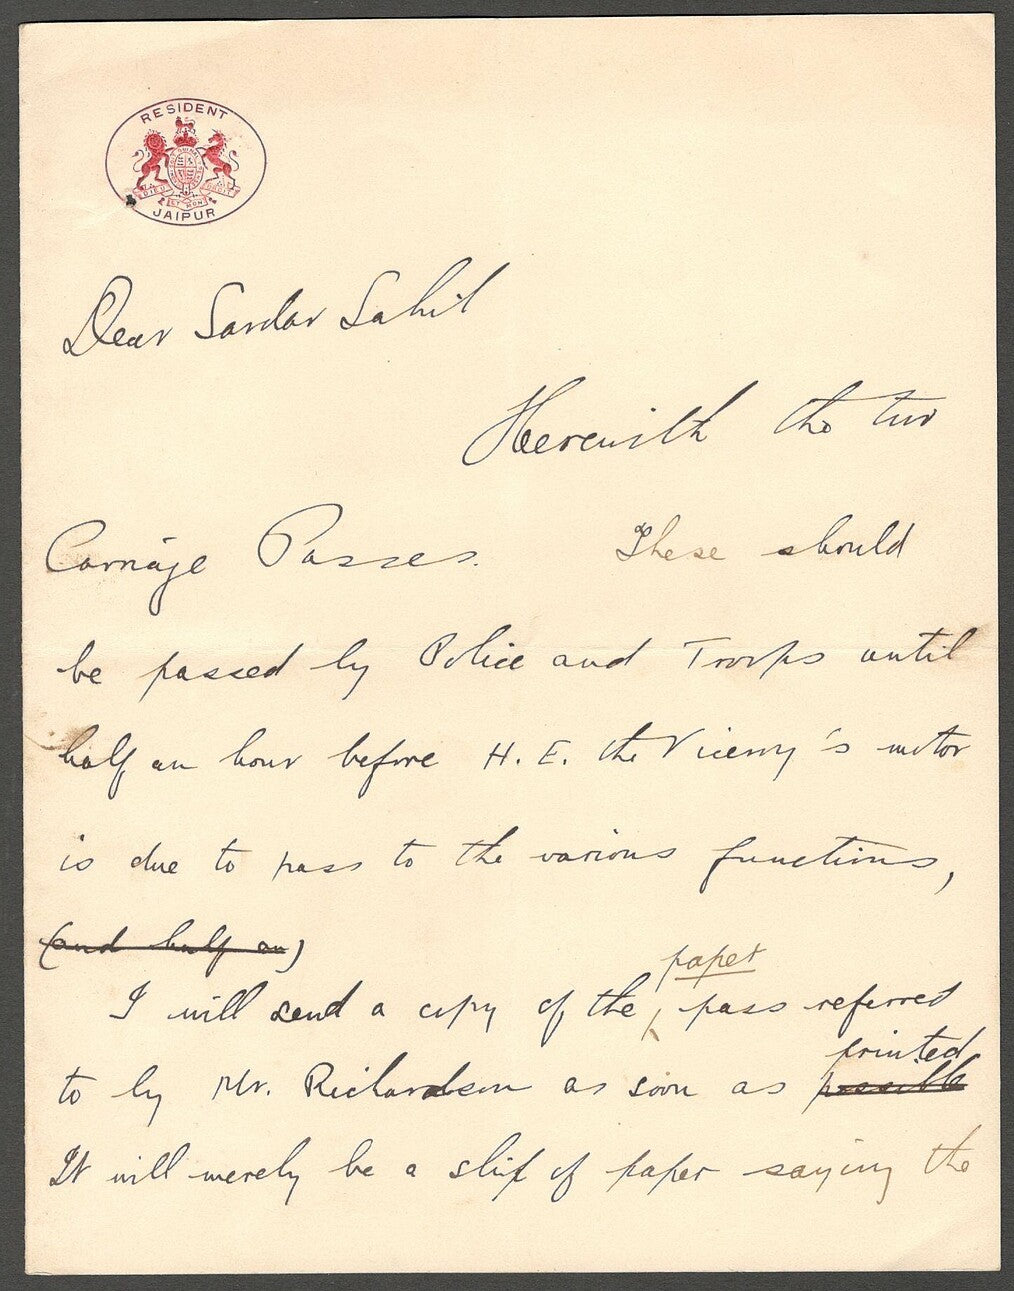 RESIDENT
DIEU ET MON DROIT
JAIPUR
Dear Sardar Sahib
Herewith the two
Carriage Passes. These should
be passed by Police and Troops until
half an hour before H. E. the Viceroy's motor
is due to pass to the various functions,
(and half an)
paper
I will send a copy of the pass referred
printed
to by Mr. Richardson as soon as possible
It will merely be a slip of paper saying the